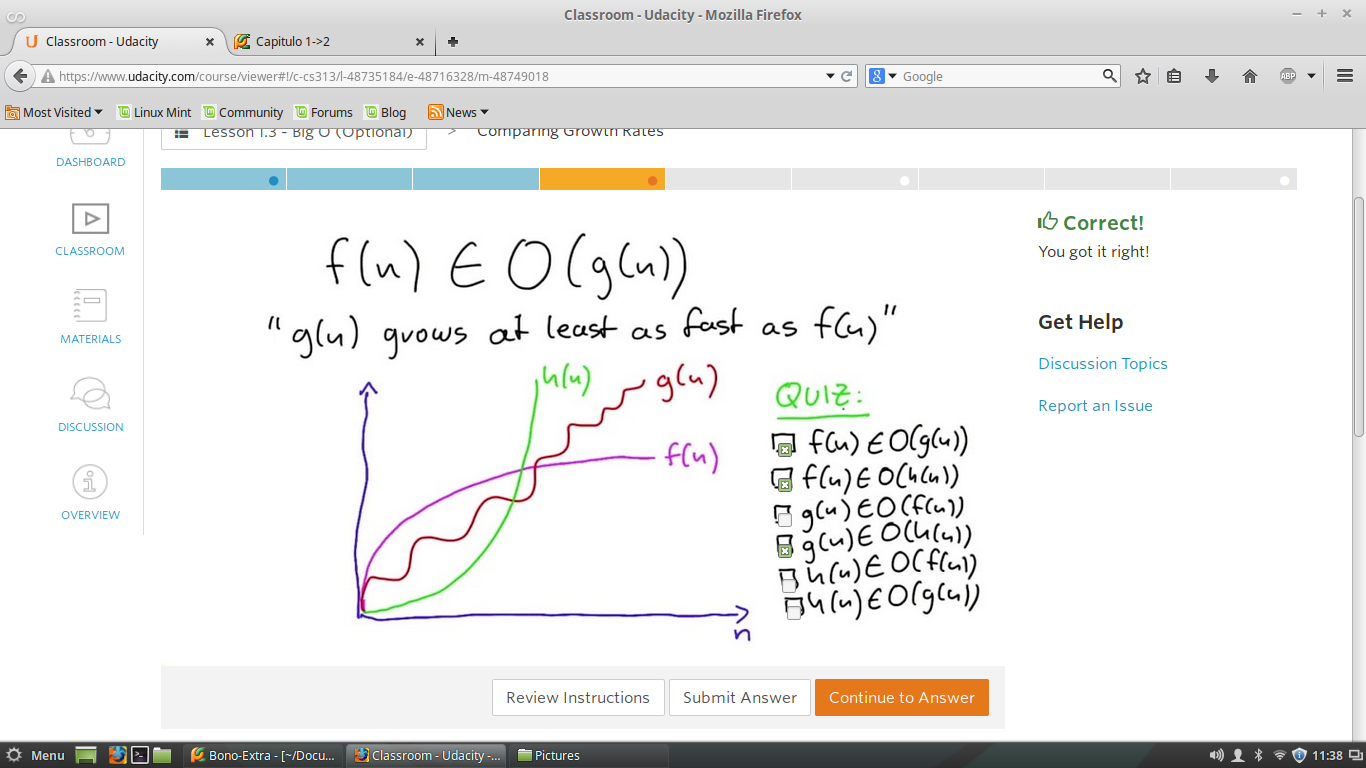 Classroom - Udacity - Mozilla Firefox
Classroom - Udacity
Capitulo 1->2
https://www.udacity.com/course/viewer#!/c-cs313/l-48735184/e-48716328/m-48749018
Google
ABP
Most Visited
Linux Mint
Community
Forums
Blog
News
Lesson 1.3 - Big O (Optional) > Comparing Growth Rates
DASHBOARD
CLASSROOM
MATERIALS
DISCUSSION
OVERVIEW
f(n) ∈ O(g(n))
"g(n) grows at least as fast as f(n)"
h(n)
g(n)
f(n)
n
QUIZ:
f(n) ∈ O(g(n))
f(n) ∈ O(h(n))
g(n) ∈ O(f(n))
g(n) ∈ O(h(n))
h(n) ∈ O(f(n))
h(n) ∈ O(g(n))
Correct!
You got it right!
Get Help
Discussion Topics
Report an Issue
Review Instructions
Submit Answer
Continue to Answer
Menu
Bono-Extra - [~/Docu...
Classroom - Udacity -...
Pictures
11:38